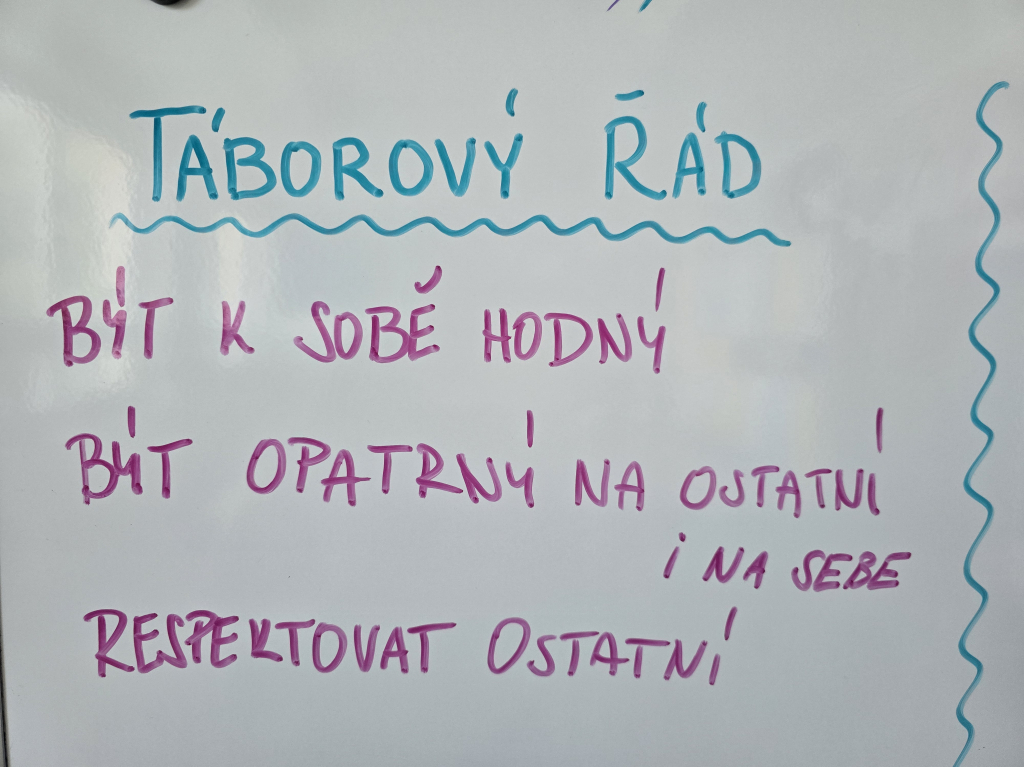 TÁBOROVÝ ŘÁD
BÝT K SOBĚ HODNÝ
BÝT OPATRNÝ NA OSTATNÍ
i NA SEBE
RESPEKTOVAT OSTATNÍ